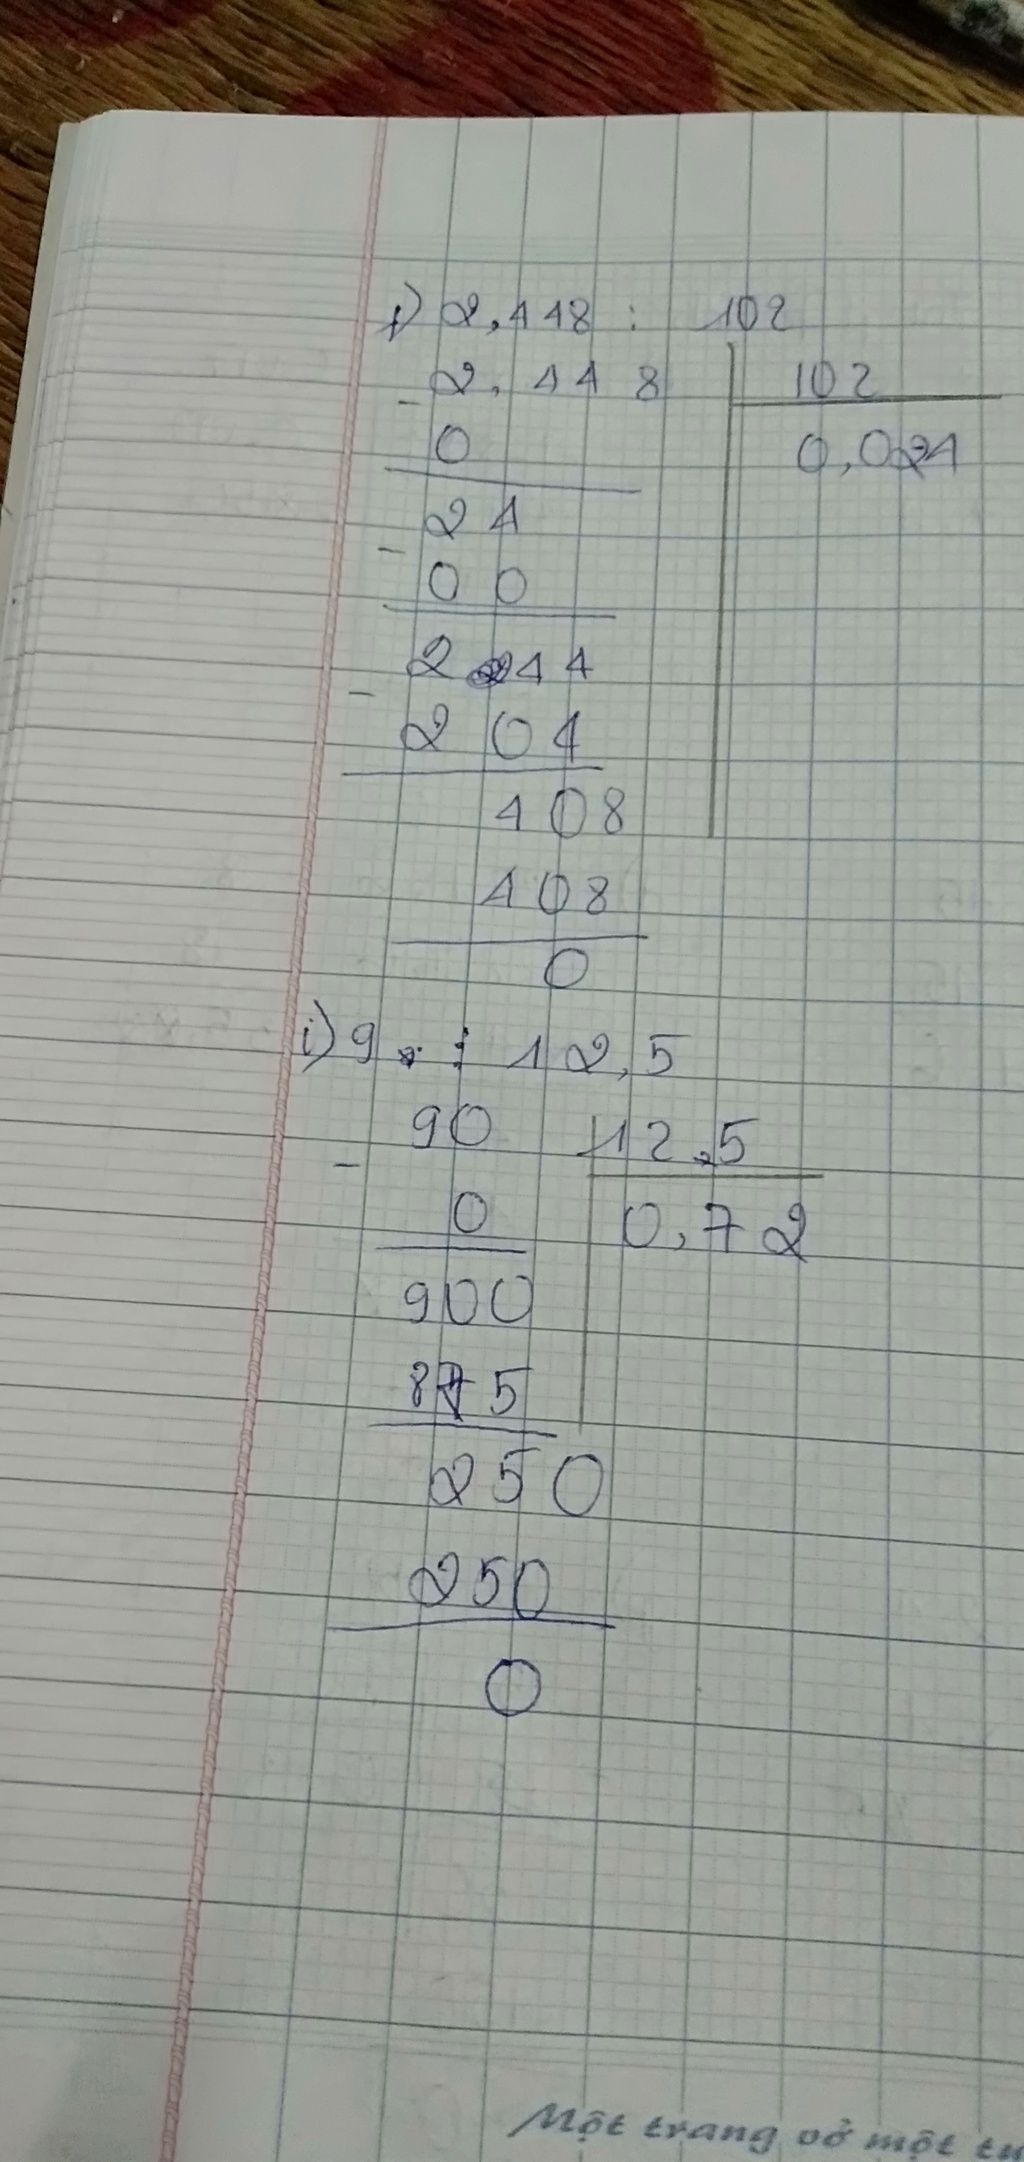 f) 2,448 : 102
- 2,448 102
0 0,024
24
- 00
244
- 204
408
408
0
i) 9 : 12,5
90 12,5
- 0 0,72
900
875
250
250
0
Một trang vở một